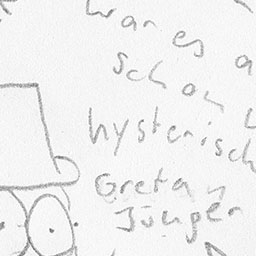 war es a
schon
hysterisch
Gretan
Jünger